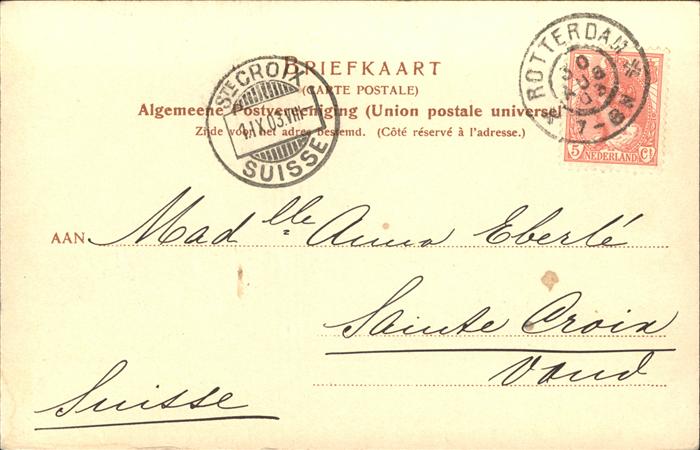 BRIEFKAART
(CARTE POSTALE)
Algemeene Postvereeniging (Union postale universelle)
Zijde voor het adres bestemd. (Côté réservé à l'adresse.)
STE CROIX
1.IX.03.VIII
SUISSE
ROTTERDAM
7-8N
5 NEDERLAND Ct
AAN Mad lle Anna Eberlé
Sainte Croix
Vaud
Suisse